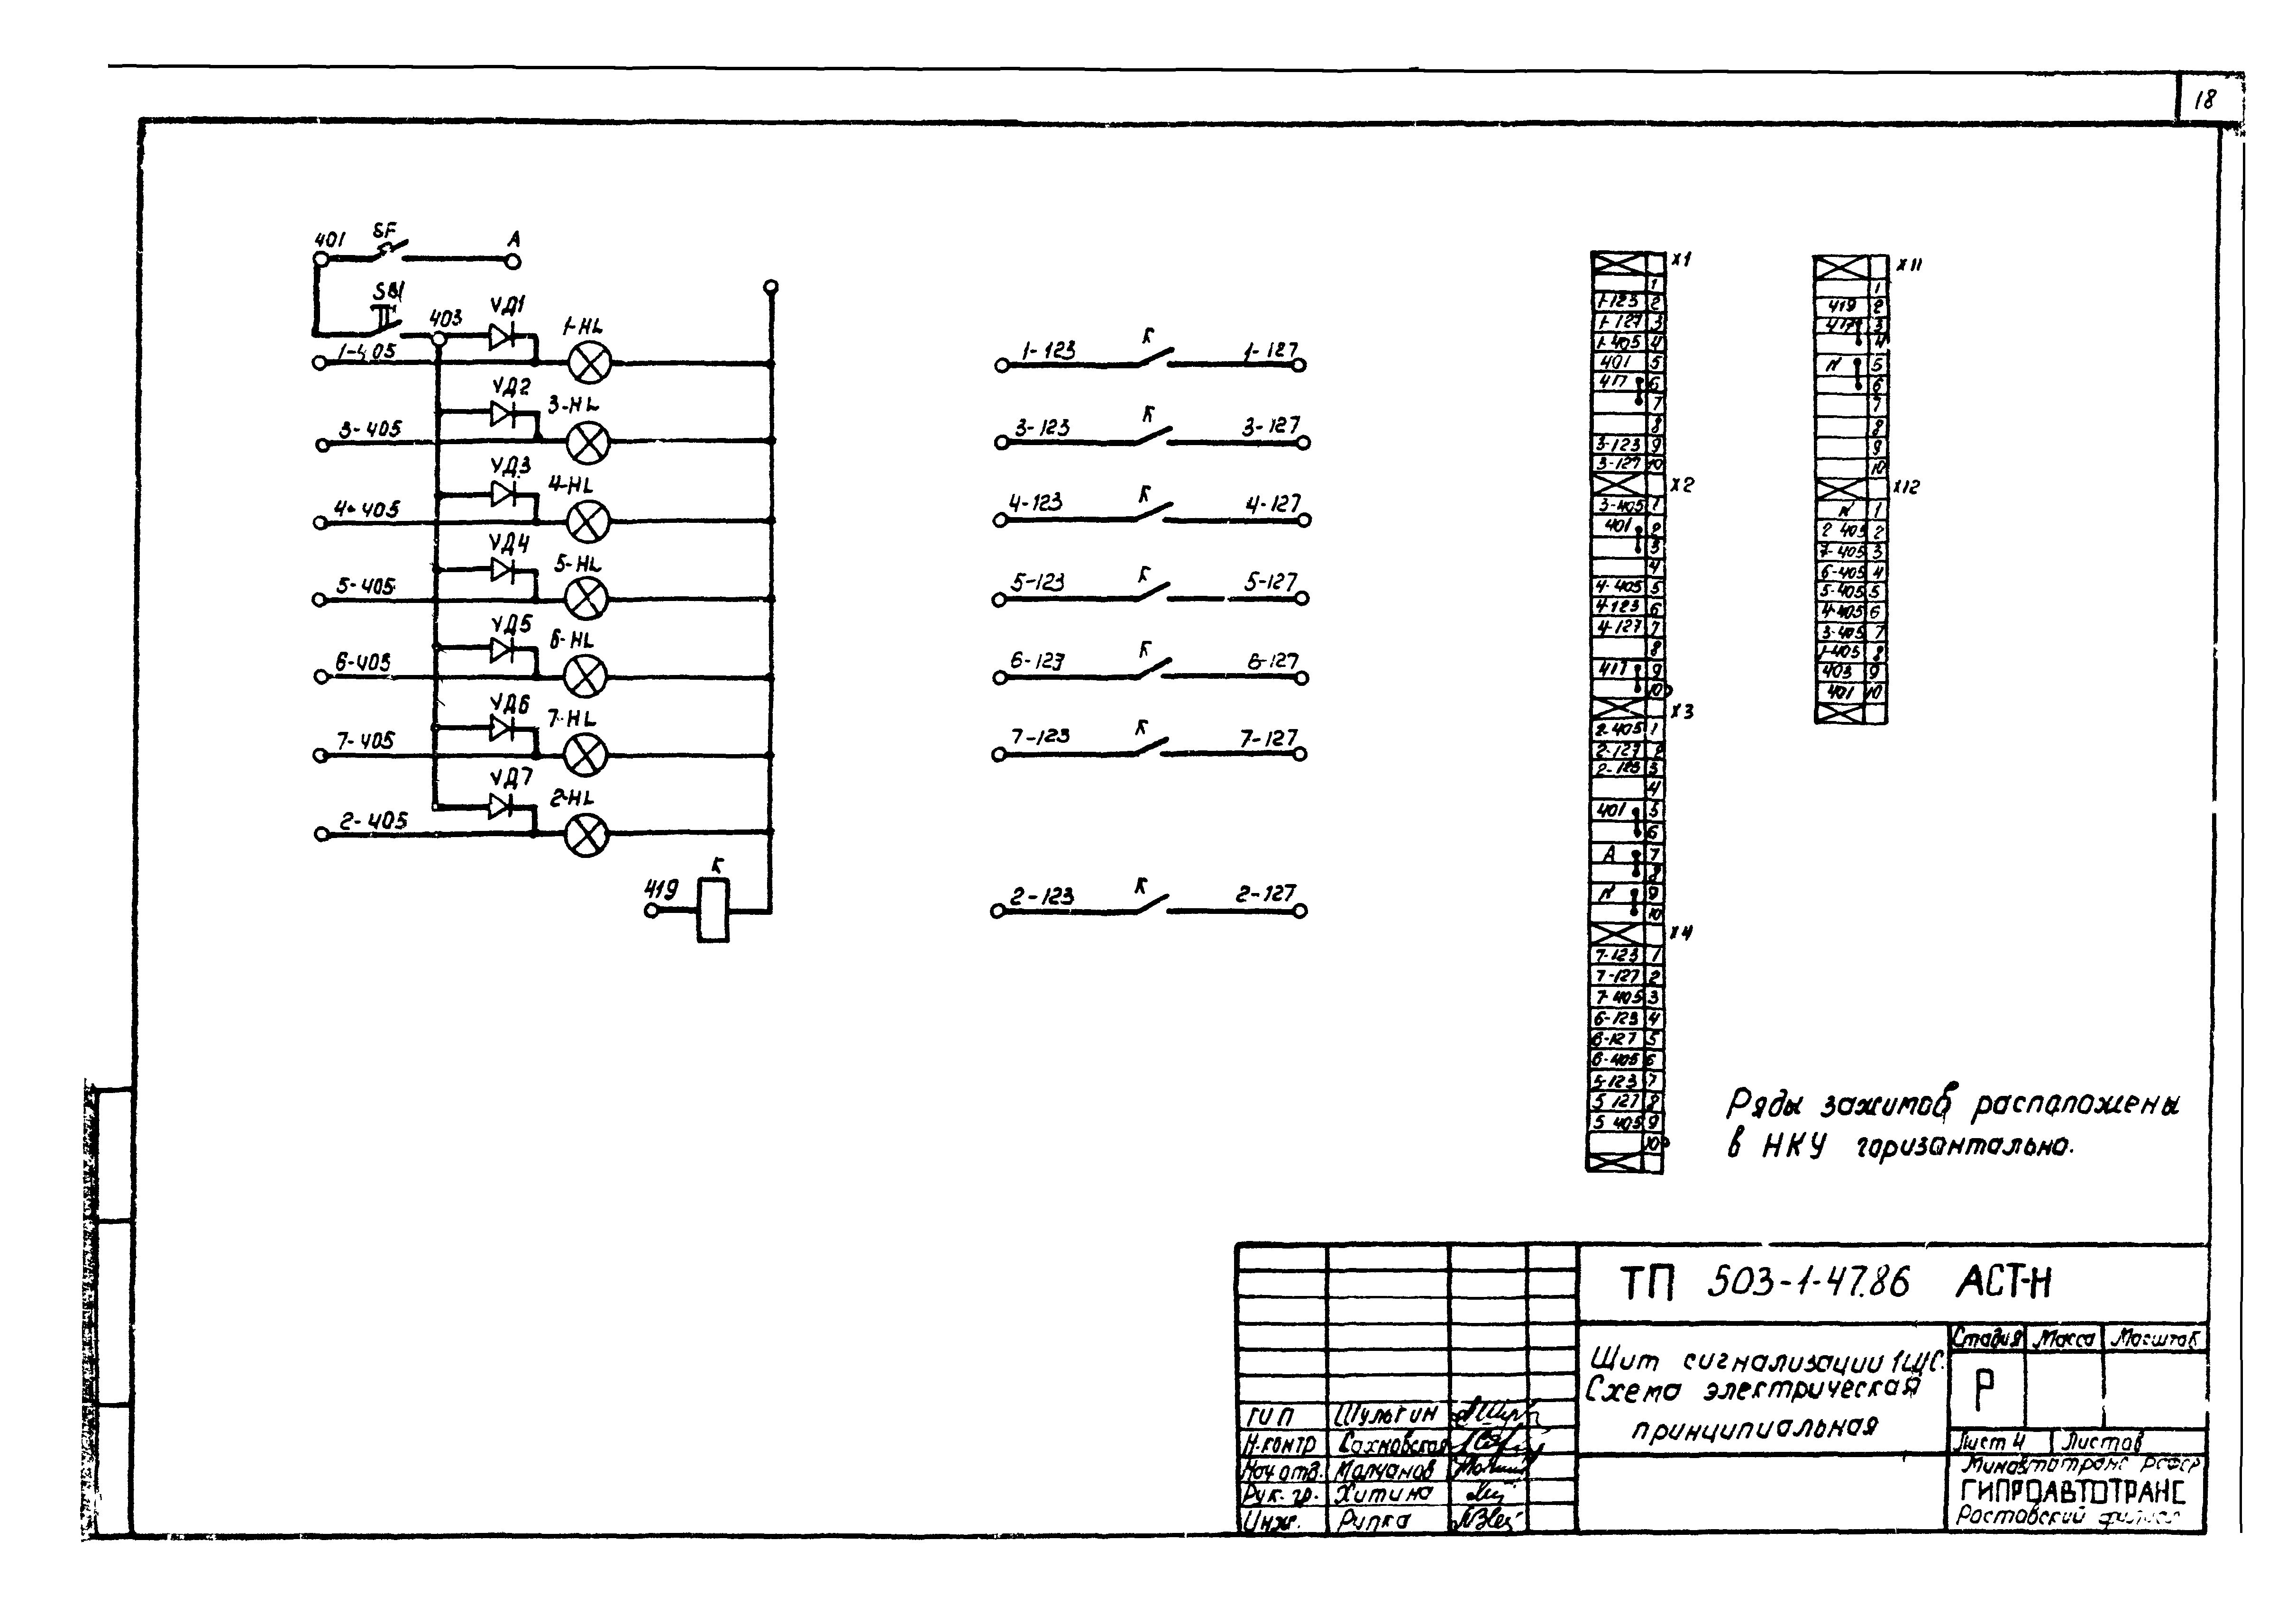 18
401 SF A
SB1
403 VД1 1-HL
1-405
VД2 3-HL
3-405
VД3 4-HL
4-405
VД4 5-HL
5-405
VД5 6-HL
6-405
VД6 7-HL
7-405
VД7 2-HL
2-405
419 К
1-123 К 1-127
3-123 К 3-127
4-123 К 4-127
5-123 К 5-127
6-123 К 6-127
7-123 К 7-127
2-123 К 2-127
X1
1
1-123 2
1-127 3
1-405 4
401 5
417 6
7
8
3-123 9
3-127 10
X2
3-405 1
401 2
3
4
4-405 5
4-123 6
4-127 7
8
417 9
10
X3
2-405 1
2-127 2
2-123 3
4
401 5
6
A 7
8
N 9
10
X4
7-123 1
7-127 2
7-405 3
6-123 4
6-127 5
6-405 6
5-123 7
5 127 8
5 405 9
10
X11
1
419 2
417 3
4
N 5
6
7
8
9
10
X12
N 1
2 405 2
7-405 3
6-405 4
5-405 5
4-405 6
3-405 7
1-405 8
403 9
401 10
Ряды зажимов расположены
в НКУ горизантально.
ТП 503-1-47.86 АСТ-Н
Щит сигнализации 1ЩС.
Схема электрическая
принципиальная
Стадия Масса Масштаб
Р
Лист 4 Листов
Минавтотранс РСФСР
ГИПРОАВТОТРАНС
Ростовский филиал
ГИП Шульгин
Н.контр Сахновская
Нач отд. Молчанов
Рук. гр. Хитина
Инж. Рипка